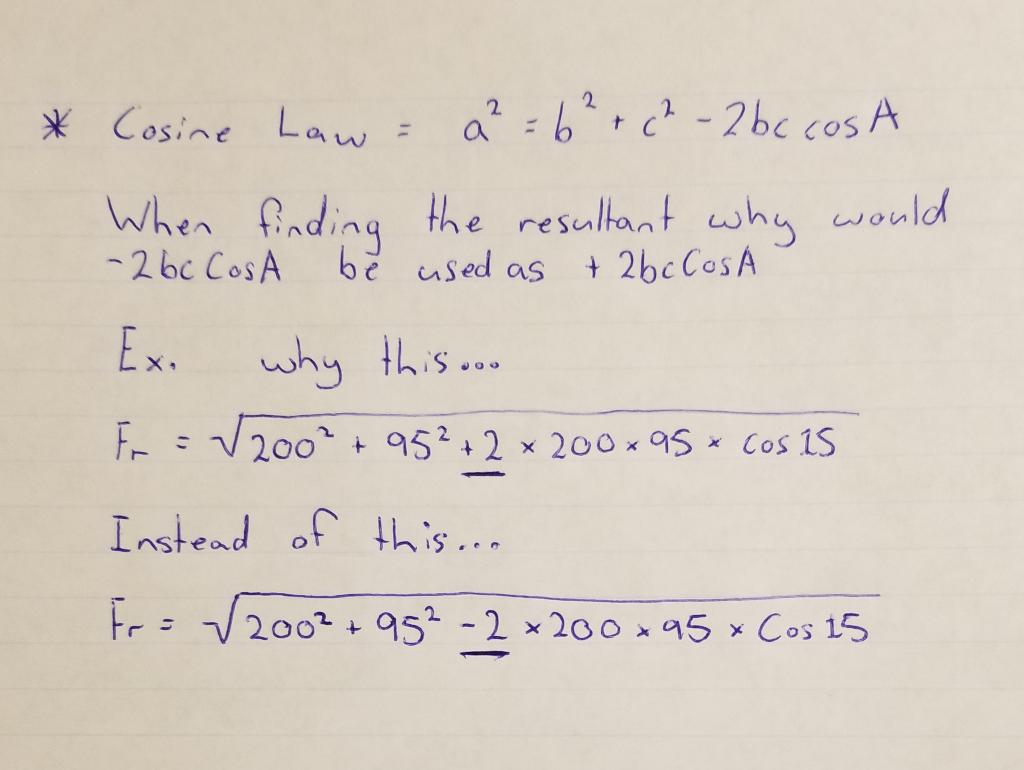 * Cosine Law = a² = b² + c² - 2bc cos A
When finding the resultant why would
-2bc Cos A be used as + 2bc Cos A
Ex. why this...
Fr = √200² + 95² + 2 × 200 × 95 × cos 15
Instead of this...
Fr = √200² + 95² - 2 × 200 × 95 × Cos 15